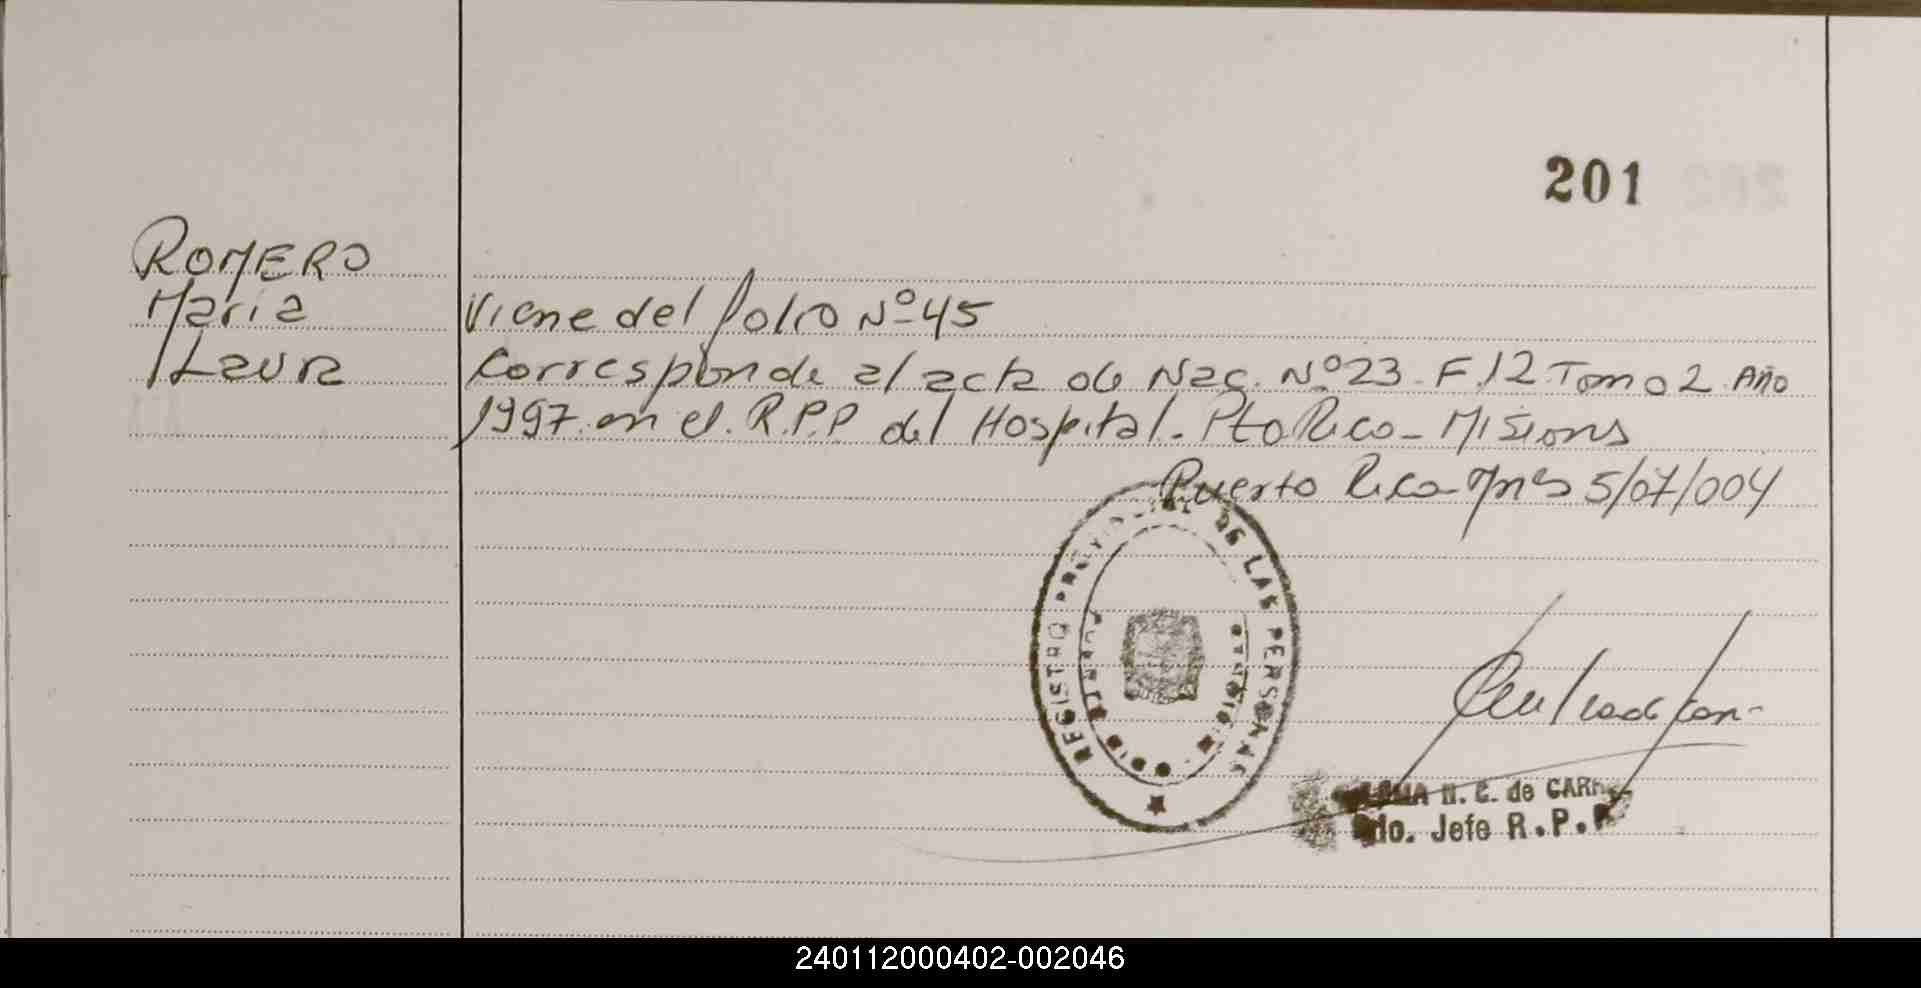 201
ROMERO
Maria
Laura
Viene del folio Nº 45
Corresponde al acta de Nac. Nº 23 F.12 Tomo 2 Año
1997 en el R.P.P del Hospital. Pto Rico - Misions
Puerto Rico Mnes 5/07/004
REGISTRO PROVINCIAL DE LAS PERSONAS
N. E. de CARR
do. Jefe R.P.P
240112000402-002046